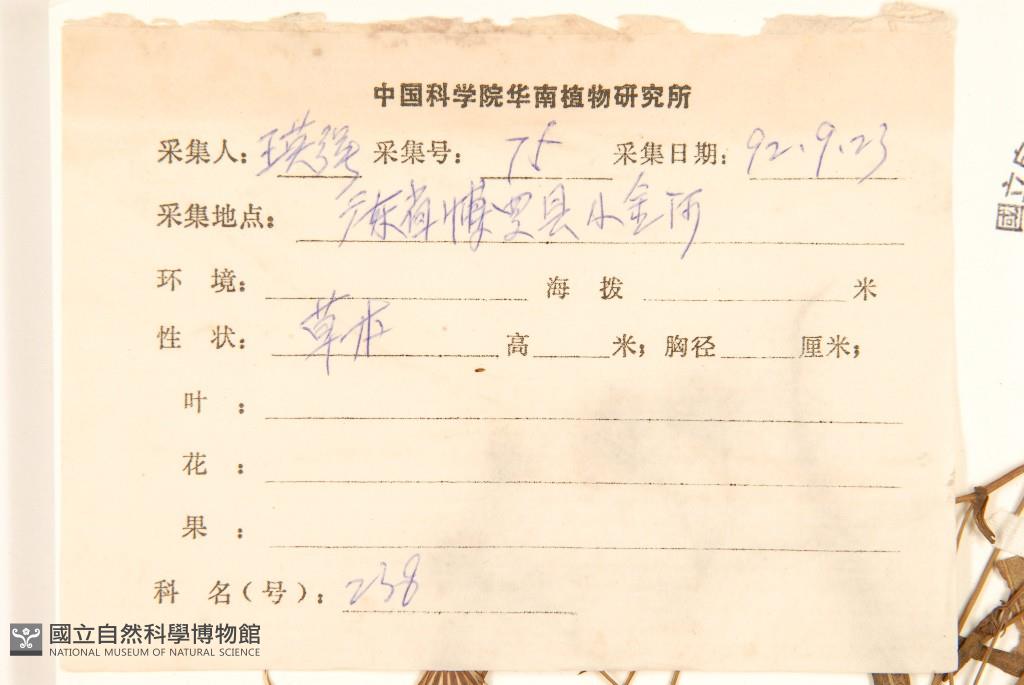 中国科学院华南植物研究所
采集人：王英强 采集号：75 采集日期：92.9.23
采集地点：广东省博罗县小金河
环 境： 海 拨 米
性 状：草本 高 米；胸径 厘米；
叶 ：
花 ：
果 ：
科 名（号）：238
國立自然科學博物館
NATIONAL MUSEUM OF NATURAL SCIENCE
國立自